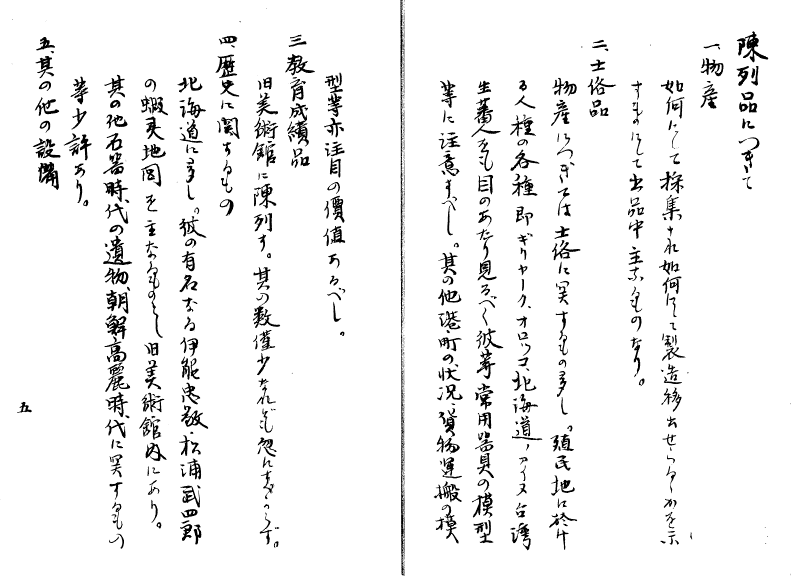 陳列品につきて
一、物産
如何にして採集され如何にして製造移出せらるゝかを示
すものにして出品中主なるものなり。
二、土俗品
物産につぎては土俗に関するもの多し。殖民地に於け
る人種の各種即ギリヤーク、オロッコ、北海道ノアイヌ台湾
生蕃人をも目のあたり見るべく彼等常用器具の模型
等に注意すべし。其の他港町の状況、貨物運搬の模
型等亦注目の價値あるべし。
三、教育成績品
旧美術館に陳列す。其の数僅少なれども忽にすべからず。
四、歴史に関するもの
北海道に多し。彼の有名なる伊能忠敬・松浦武四郎
の蝦夷地図を主なるものとし旧美術館内にあり。
其の他石器時代の遺物、朝鮮高麗時代に関するもの
等少許あり。
五、其の他の設備
五